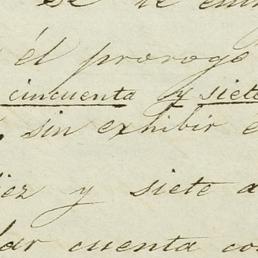 se le
él prorogo
cincuenta y siete
sin exhibir e
iez y siete a
lar cuenta co